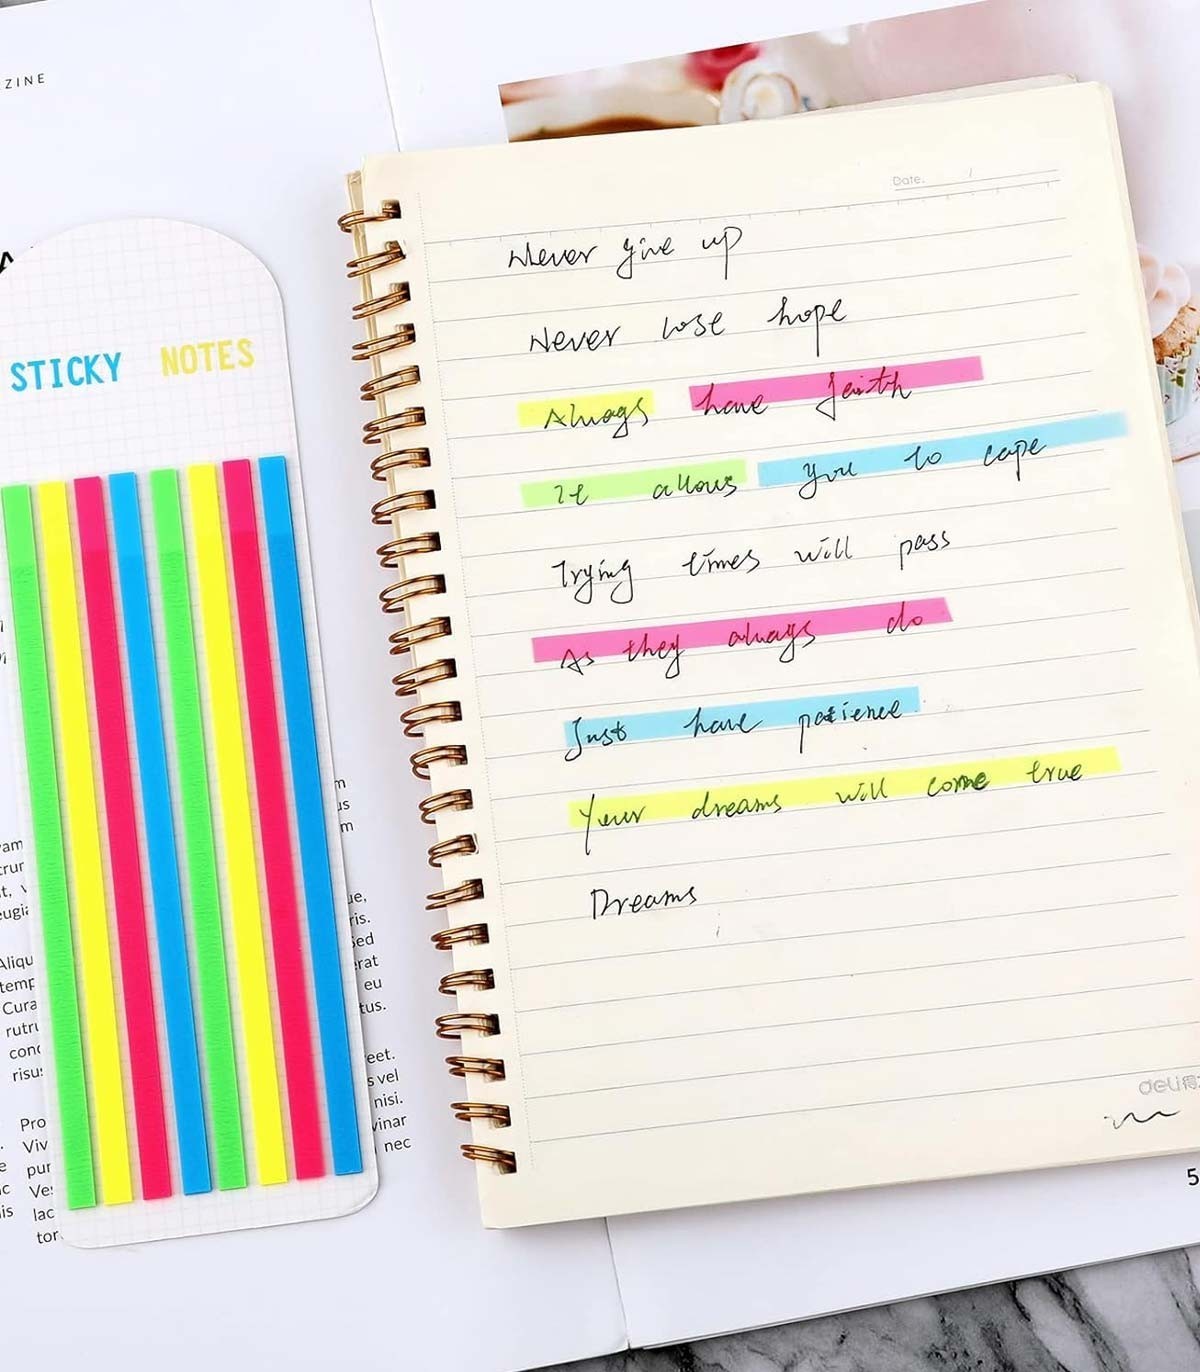 ZINE
STICKY NOTES
Date.
Never give up
Never lose hope
Always have faith
It allows you to cope
Trying times will pass
As they always do
Just have patience
Your dreams will come true
Dreams
deli
5
am
trur
eugia
Aliqu
temp
Cura
rutru
conc
risus
Pro
Viv
pur
Ves
lac
tor
m
us
m
ue,
ris.
Sed
erat
eu
tus.
eet.
s vel
nisi.
vinar
nec